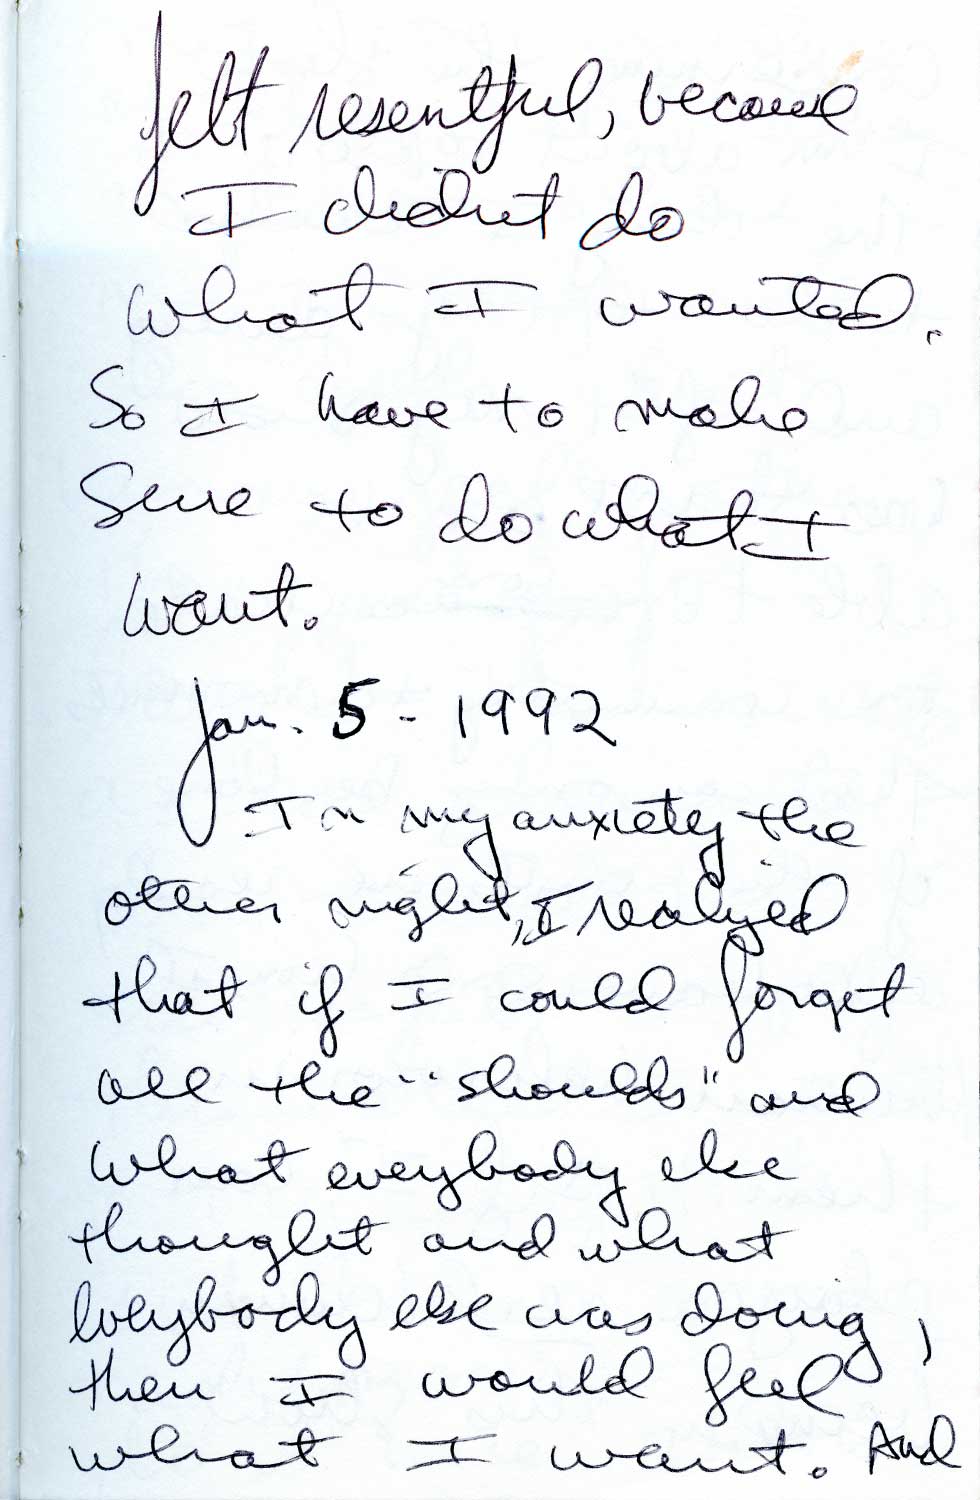 felt resentful, because
I didn't do
what I wanted.
So I have to make
sure to do what I
want.
Jan. 5 - 1992
In my anxiety the
other night, I realized
that if I could forget
all the "shoulds" and
what everybody else
thought and what
everybody else was doing,
then I would feel
what I want. And